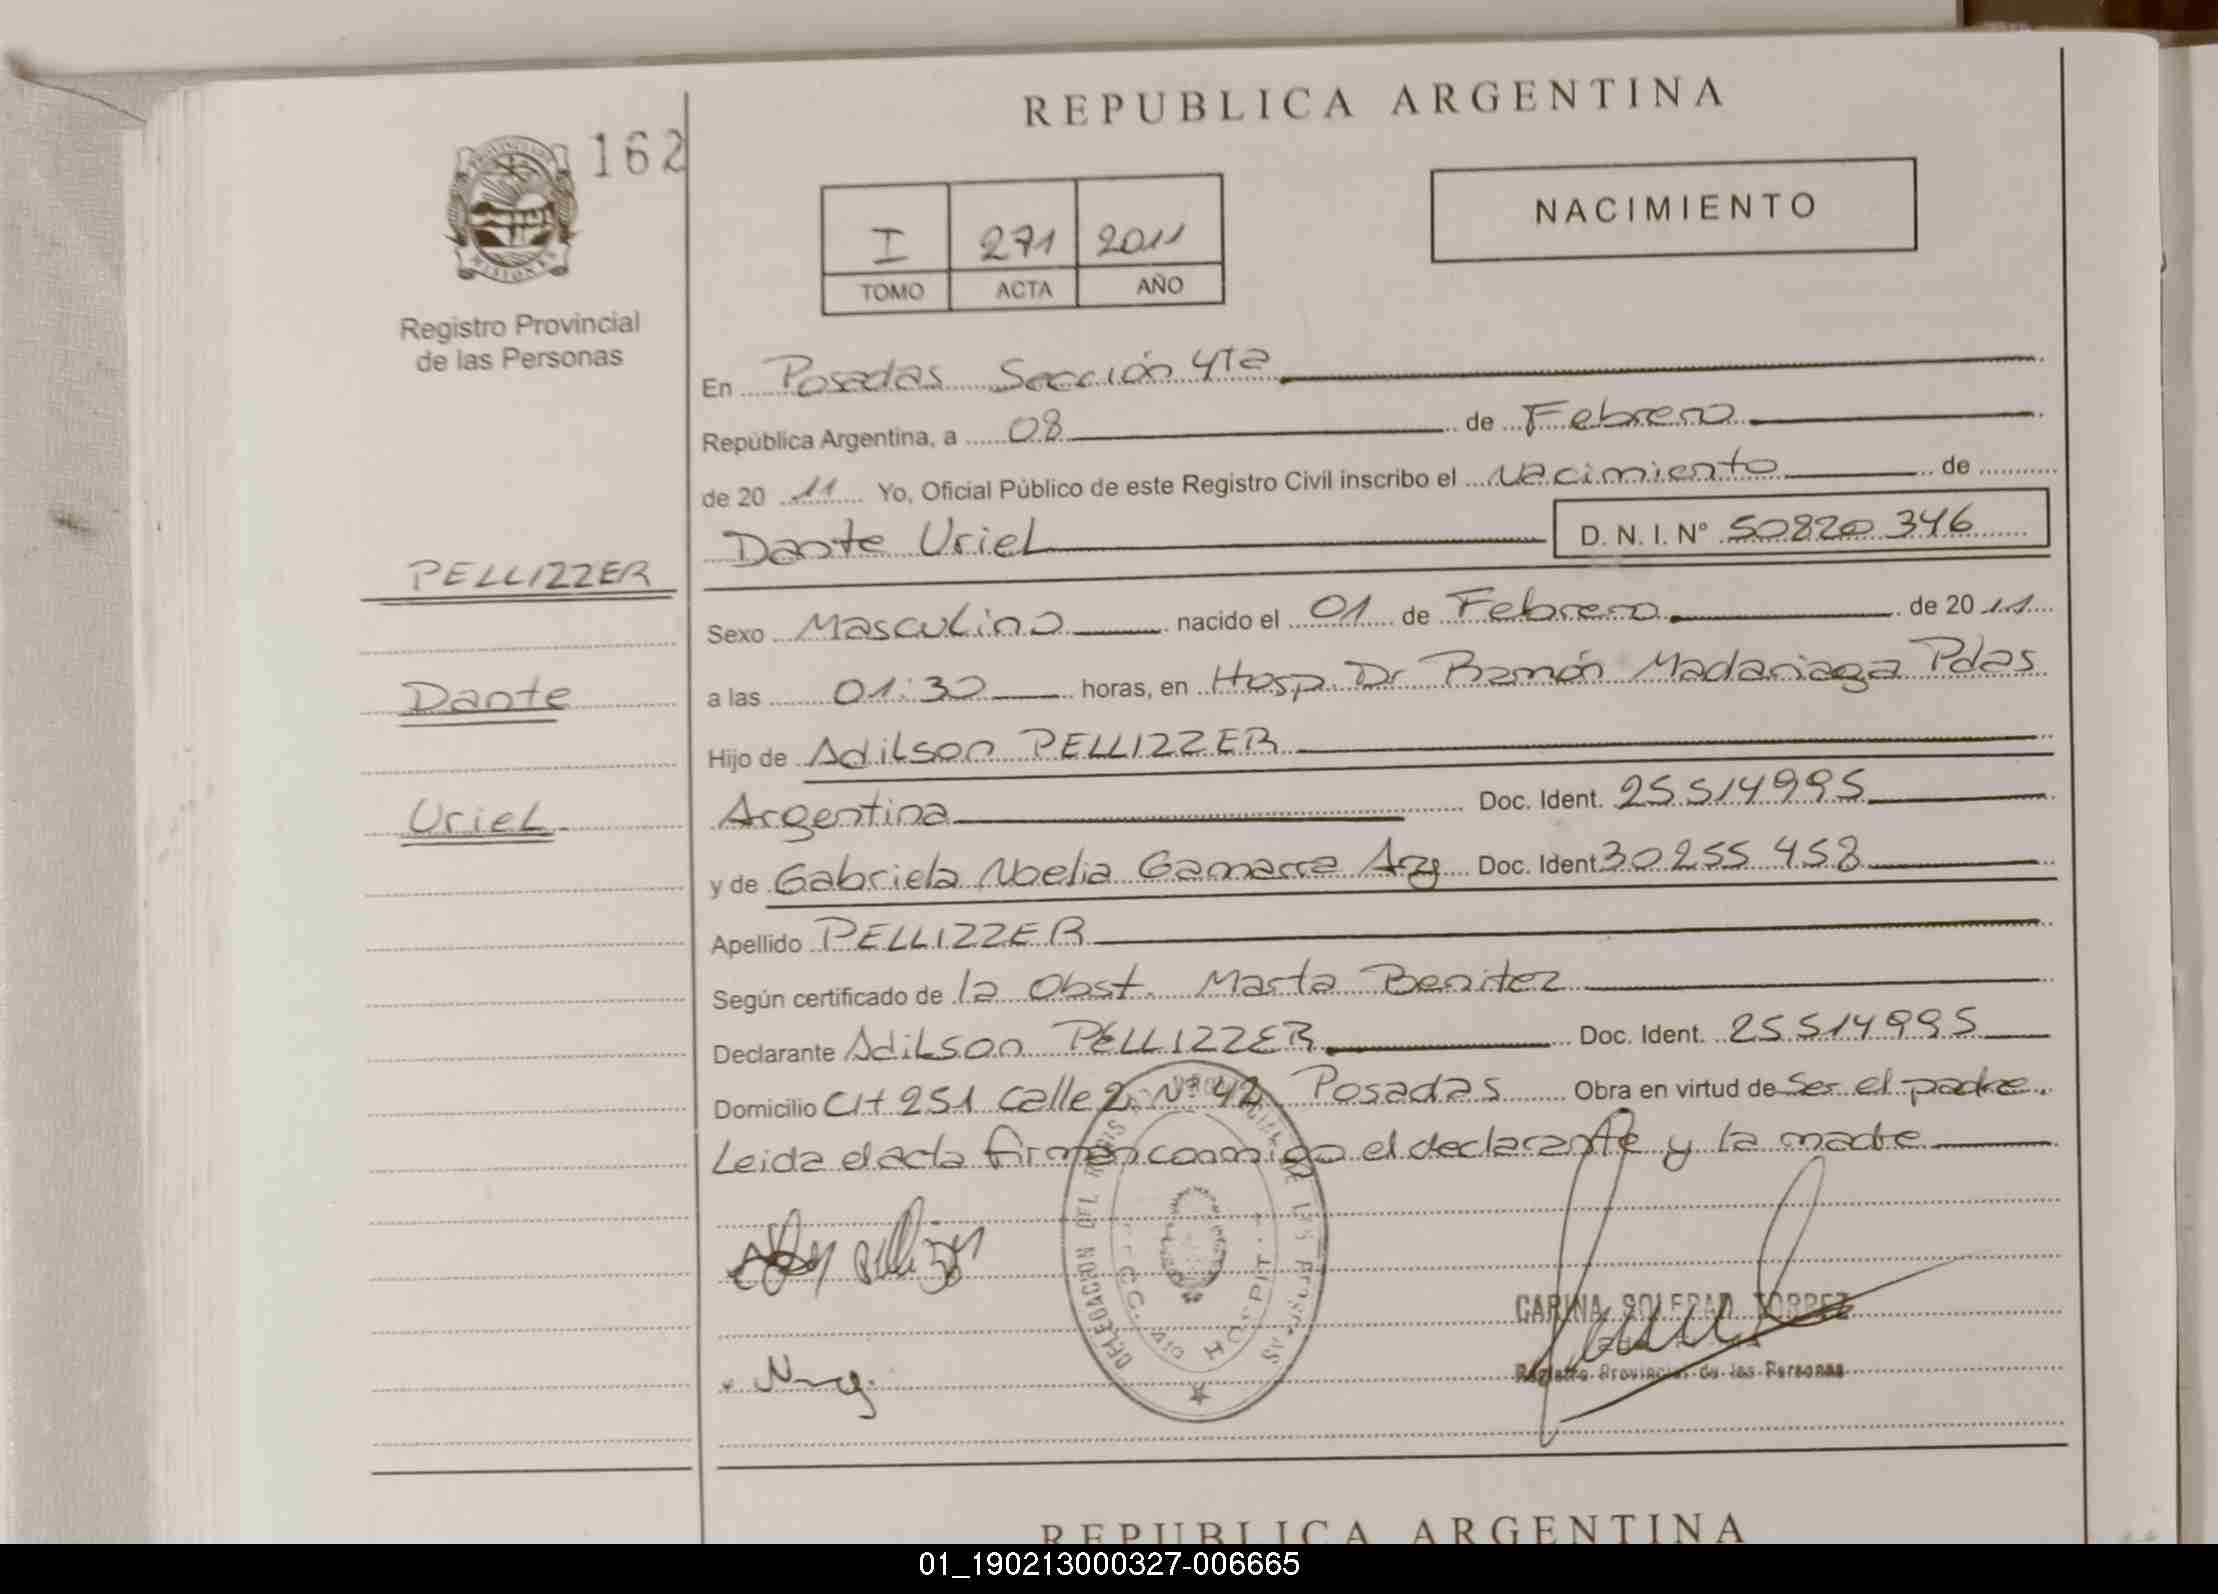 REPUBLICA ARGENTINA
162
NACIMIENTO
I 271 2011
TOMO ACTA AÑO
Registro Provincial
de las Personas
En Posadas Sección 4ta
República Argentina, a 08 de Febrero
de 20 11 Yo, Oficial Público de este Registro Civil inscribo el Nacimiento de
Dante Uriel D. N. I. Nº 50820 346
PELLIZZER
Dante
Uriel
Sexo Masculino nacido el 01 de Febrero de 20 11
a las 01:30 horas, en Hosp. Dr Ramón Madariaga Pdas
Hijo de Adilson PELLIZZER
Argentina Doc. Ident. 25514995
y de Gabriela Noelia Gamarra Arg Doc. Ident 30255 458
Apellido PELLIZZER
Según certificado de la Obst. Marta Benitez
Declarante Adilson PELLIZZER Doc. Ident. 25514995
Domicilio CH 251 Calle 2 Nº 42 Posadas Obra en virtud de Ser el padre.
Leida el acta firman conmigo el declarante y la madre
DELEGACION DEL DE LAS
CARINA SOLEDAD TORREZ
Registro Provincial de las Personas
REPUBLICA ARGENTINA
01_190213000327-006665